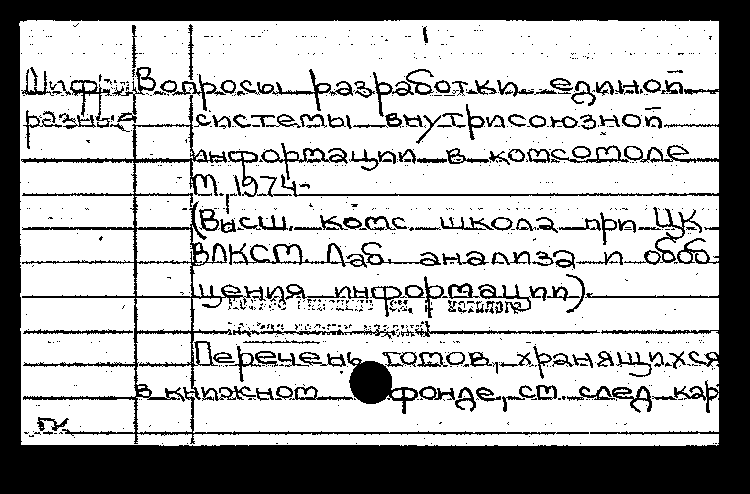 Шифры Вопросы разработки единой
разные системы внутрисоюзной
информации в комсомоле
М., 1974-
(Высш. комс. школа при ЦК
ВЛКСМ. Лаб. анализа и обоб-
щения информации).
см. в каталоге
Перечень томов, хранящихся
в книжном фонде, см. след. кар
ГК